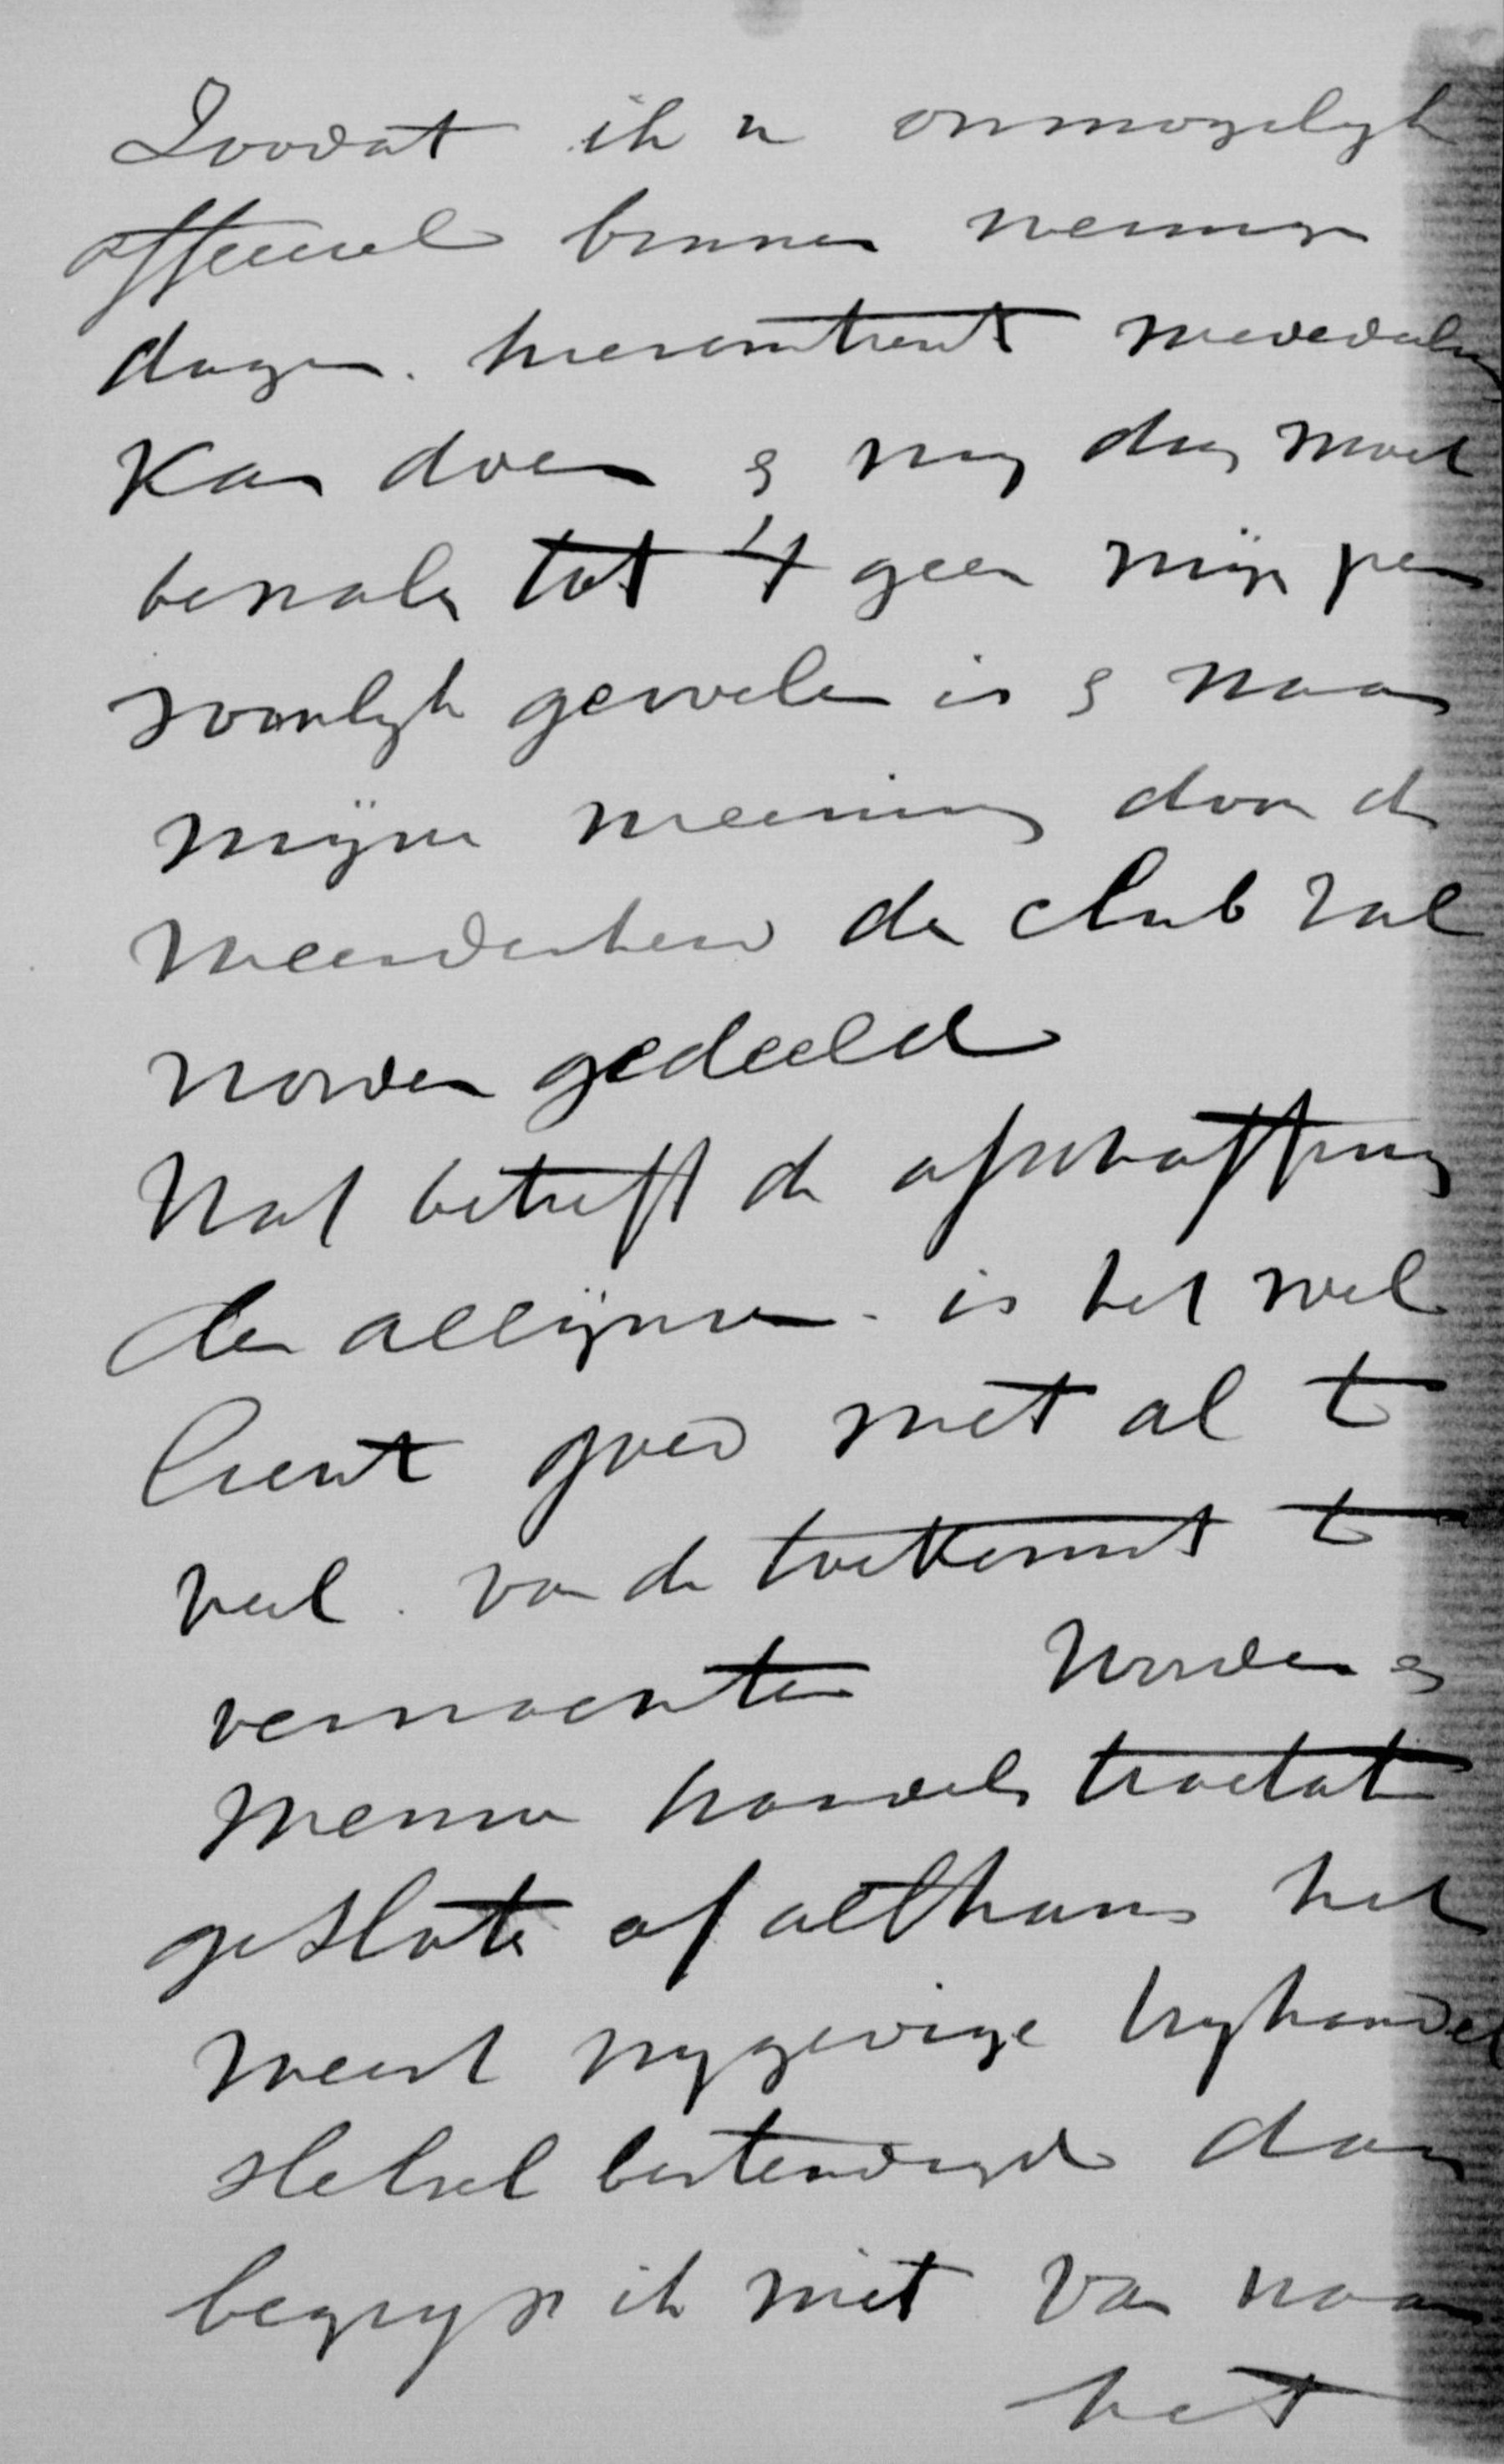 Zoodat ik u onmogelyk
officieel binnen weinige
dagen. hieromtrent mededeeling
Kan doen & my dus moet
bepalen tot 't geen mijn per
soonlyk gevoelen is & naar
mijne meening door de
meerderheid der club zal
worden gedeeld
Wat betreft de afschaffing
der accijnzen. is het wel
licht goed niet al te
veel. van de toekomst te
verwachten Worden er
nieuwe handels tractaten
gesloten of althans het
meest vrygevige vryhandel
stelsel bestendigd dan
begryp ik niet van waar
het